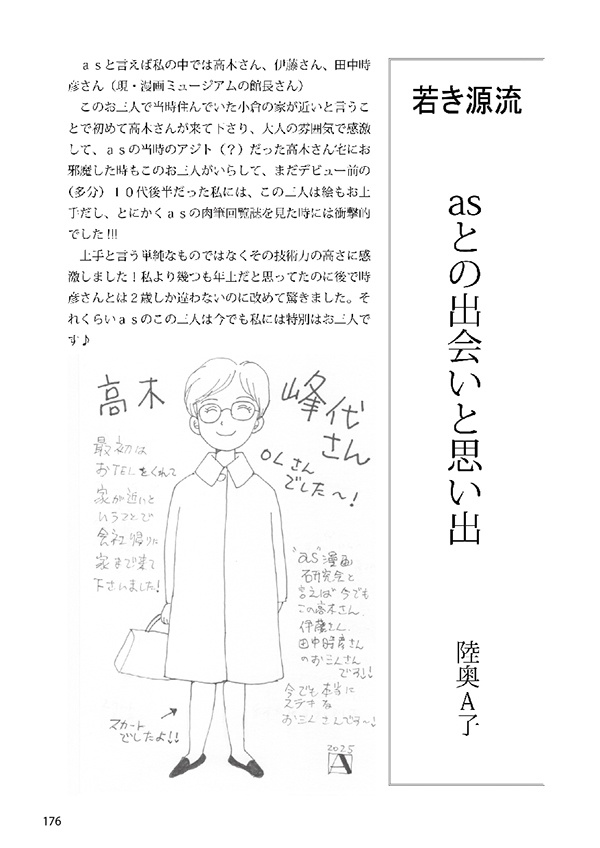 若き源流
asとの出会いと思い出
陸奥A子
ａｓと言えば私の中では高木さん、伊藤さん、田中時
彦さん（現・漫画ミュージアムの館長さん）
このお三人で当時住んでいた小倉の家が近いと言うこ
とで初めて高木さんが来て下さり、大人の雰囲気で感激
して、ａｓの当時のアジト（？）だった高木さん宅にお
邪魔した時もこのお三人がいらして、まだデビュー前の
（多分）１０代後半だった私には、この三人は絵もお上
手だし、とにかくａｓの肉筆回覧誌を見た時には衝撃的
でした!!!
上手と言う単純なものではなくその技術力の高さに感
激しました！私より幾つも年上だと思ってたのに後で時
彦さんとは２歳しか違わないのに改めて驚きました。そ
れくらいａｓのこの三人は今でも私には特別はお三人で
す♪
高木
峰代
さん
OLさん
でした〜!
最初は
おTELをくれて
家が近いと
いうことで
会社帰りに
家まで来て
下さいました!
"as"漫画
研究会と
言えば今でも
この高木さん
伊藤さん
田中時彦さん
のお三人さん
です!!
今でも本当に
ステキな
お三人さんです〜!
スカート
でしたよ!!
2025
A
176